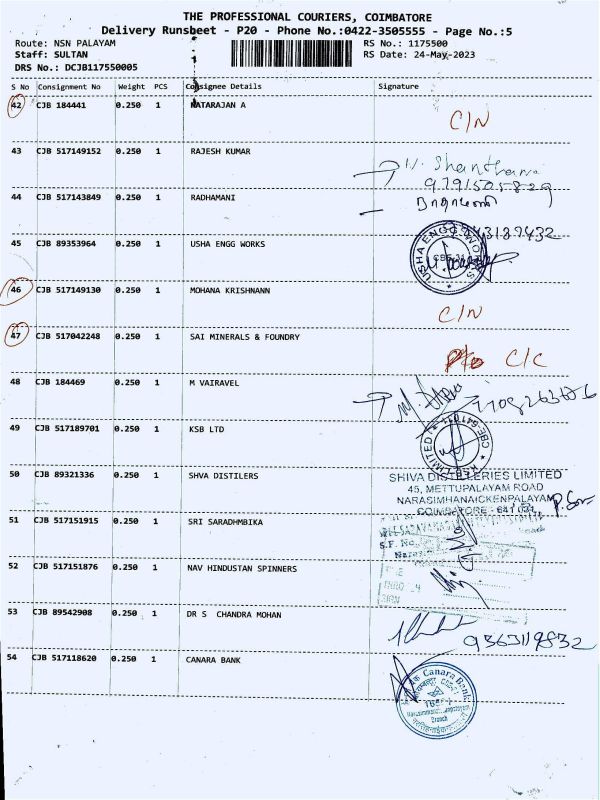 THE PROFESSIONAL COURIERS, COIMBATORE
Delivery Runsheet - P20 - Phone No.:0422-3505555 - Page No.:5
Route: NSN PALAYAM
RS No.: 1175500
Staff: SULTAN
RS Date: 24-May-2023
DRS No.: DCJB117550005
S No Consignment No Weight PCS Consignee Details Signature
42 CJB 184441 0.250 1 NATARAJAN A
C/N
43 CJB 517149152 0.250 1 RAJESH KUMAR
V. Shanthana
9791505829
44 CJB 517143849 0.250 1 RADHAMANI
45 CJB 89353964 0.250 1 USHA ENGG WORKS
USHA ENGG WORKS
46 CJB 517149130 0.250 1 MOHANA KRISHNANN
C/N
47 CJB 517042248 0.250 1 SAI MINERALS & FOUNDRY
C/C
48 CJB 184469 0.250 1 M VAIRAVEL
49 CJB 517189701 0.250 1 KSB LTD
50 CJB 89321336 0.250 1 SHVA DISTILERS
SHIVA DISTILLERIES LIMITED
45, METTUPALAYAM ROAD
NARASIMHANAICKENPALAYAM
COIMBATORE - 641 031
51 CJB 517151915 0.250 1 SRI SARADHMBIKA
S.F. No.
52 CJB 517151876 0.250 1 NAV HINDUSTAN SPINNERS
53 CJB 89542908 0.250 1 DR S CHANDRA MOHAN
9363119832
54 CJB 517118620 0.250 1 CANARA BANK
Canara Bank
Branch